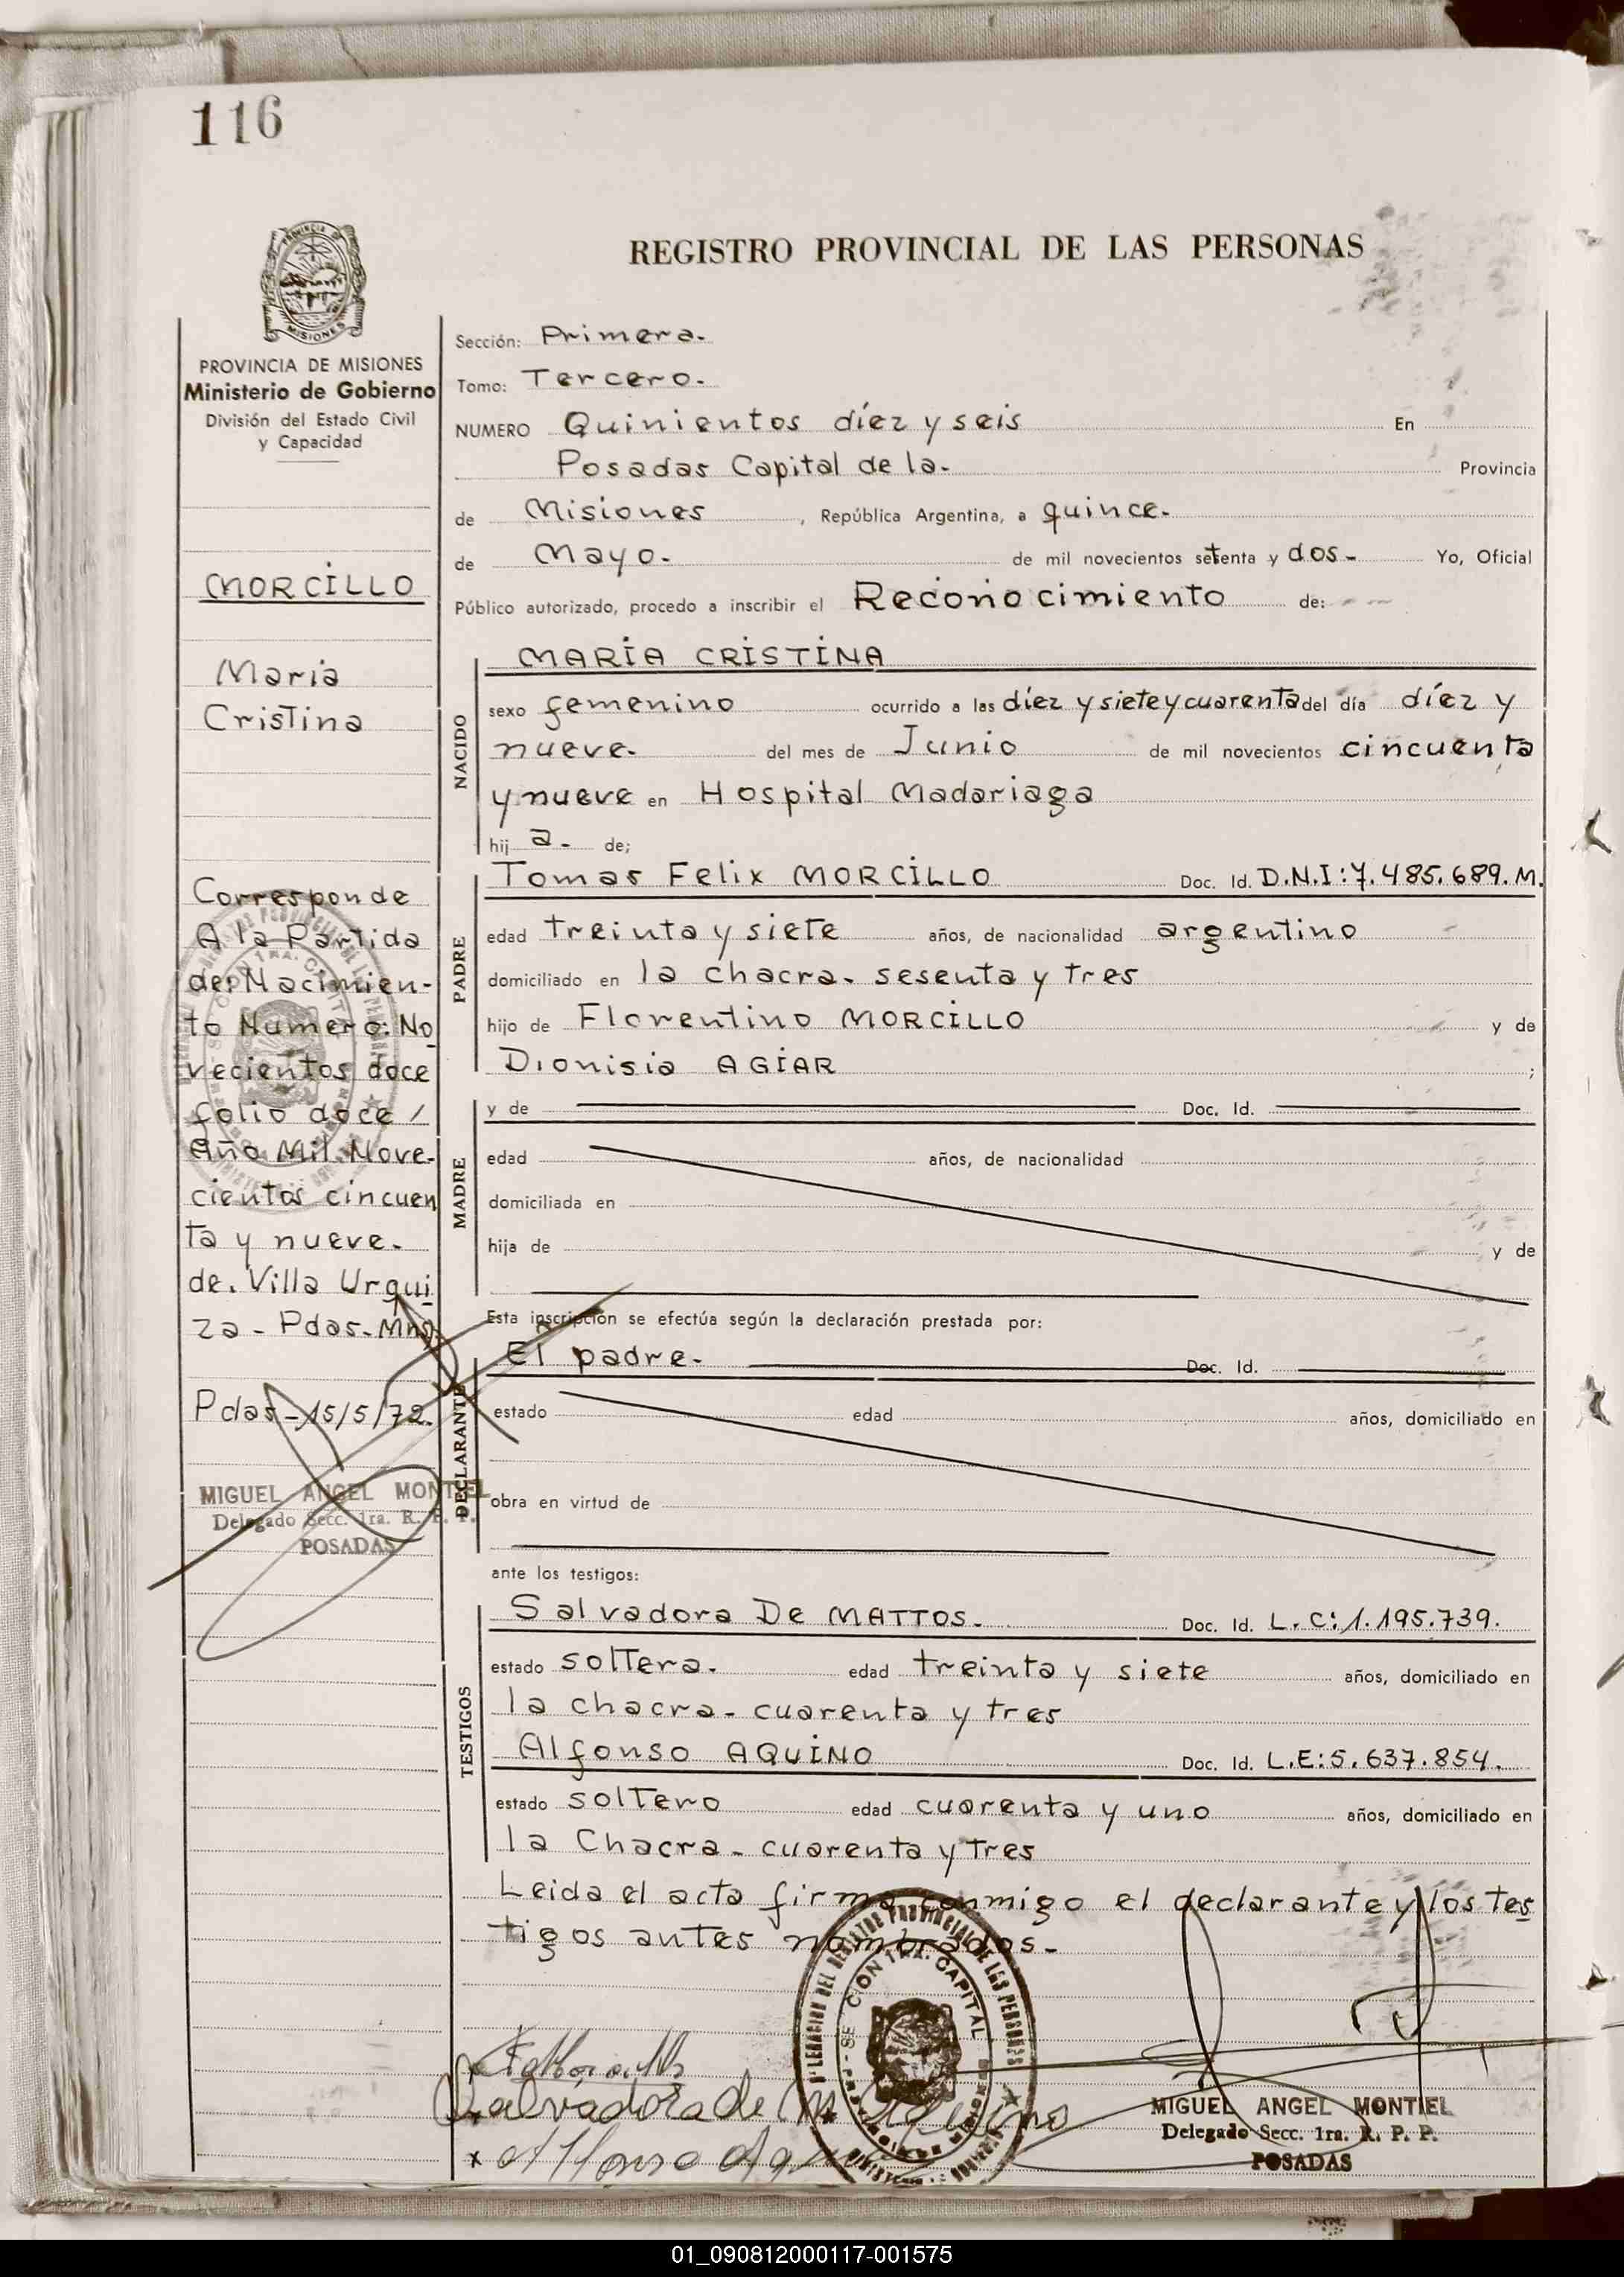 116
REGISTRO PROVINCIAL DE LAS PERSONAS
PROVINCIA DE MISIONES
Ministerio de Gobierno
División del Estado Civil
y Capacidad
MORCILLO
Maria
Cristina
Corresponde
A la Partida
de: Nacimien-
to Numero: No
vecientos doce
folio doce /
Año Mil Nove-
cientos cincuen
ta y nueve.
de. Villa Urqui
za - Pdas - Mns.
Pdas - 15/5/72.
MIGUEL ANGEL MONTIEL
Delegado Secc. 1ra. R. P. P.
POSADAS
Sección: Primera.
Tomo: Tercero.
NUMERO Quinientos díez y seis En
Posadas Capital de la - Provincia
de Misiones , República Argentina, a quince.
de Mayo. de mil novecientos setenta y dos - Yo, Oficial
Público autorizado, procedo a inscribir el Reconocimiento de:
NACIDO
MARIA CRISTINA
sexo femenino ocurrido a las díez y siete y cuarenta del día díez y
nueve. del mes de Junio de mil novecientos cincuenta
y nueve en Hospital Madariaga
hij a. de;
PADRE
Tomas Felix MORCILLO Doc. Id. D.N.I: 7.485.689.M.
edad treinta y siete años, de nacionalidad argentino
domiciliado en la chacra - sesenta y tres
hijo de Florentino MORCILLO y de
Dionisia AGIAR ;
MADRE
y de Doc. Id.
edad años, de nacionalidad
domiciliada en
hija de y de
Esta inscripción se efectúa según la declaración prestada por:
DECLARANTE
El padre. Doc. Id.
estado edad años, domiciliado en
obra en virtud de
ante los testigos:
TESTIGOS
Salvadora De MATTOS. Doc. Id. L.C: 1.195.739.
estado soltera. edad treinta y siete años, domiciliado en
la chacra - cuarenta y tres
Alfonso AQUINO Doc. Id. L.E: 5.637.854.
estado soltero edad cuarenta y uno años, domiciliado en
la Chacra - cuarenta y tres
Leida el acta firma conmigo el declarante y los tes
tigos antes nombrados.-
Salvadora de
x Alfonso Aquino
MIGUEL ANGEL MONTIEL
Delegado Secc. 1ra. R. P. P.
POSADAS
01_090812000117-001575